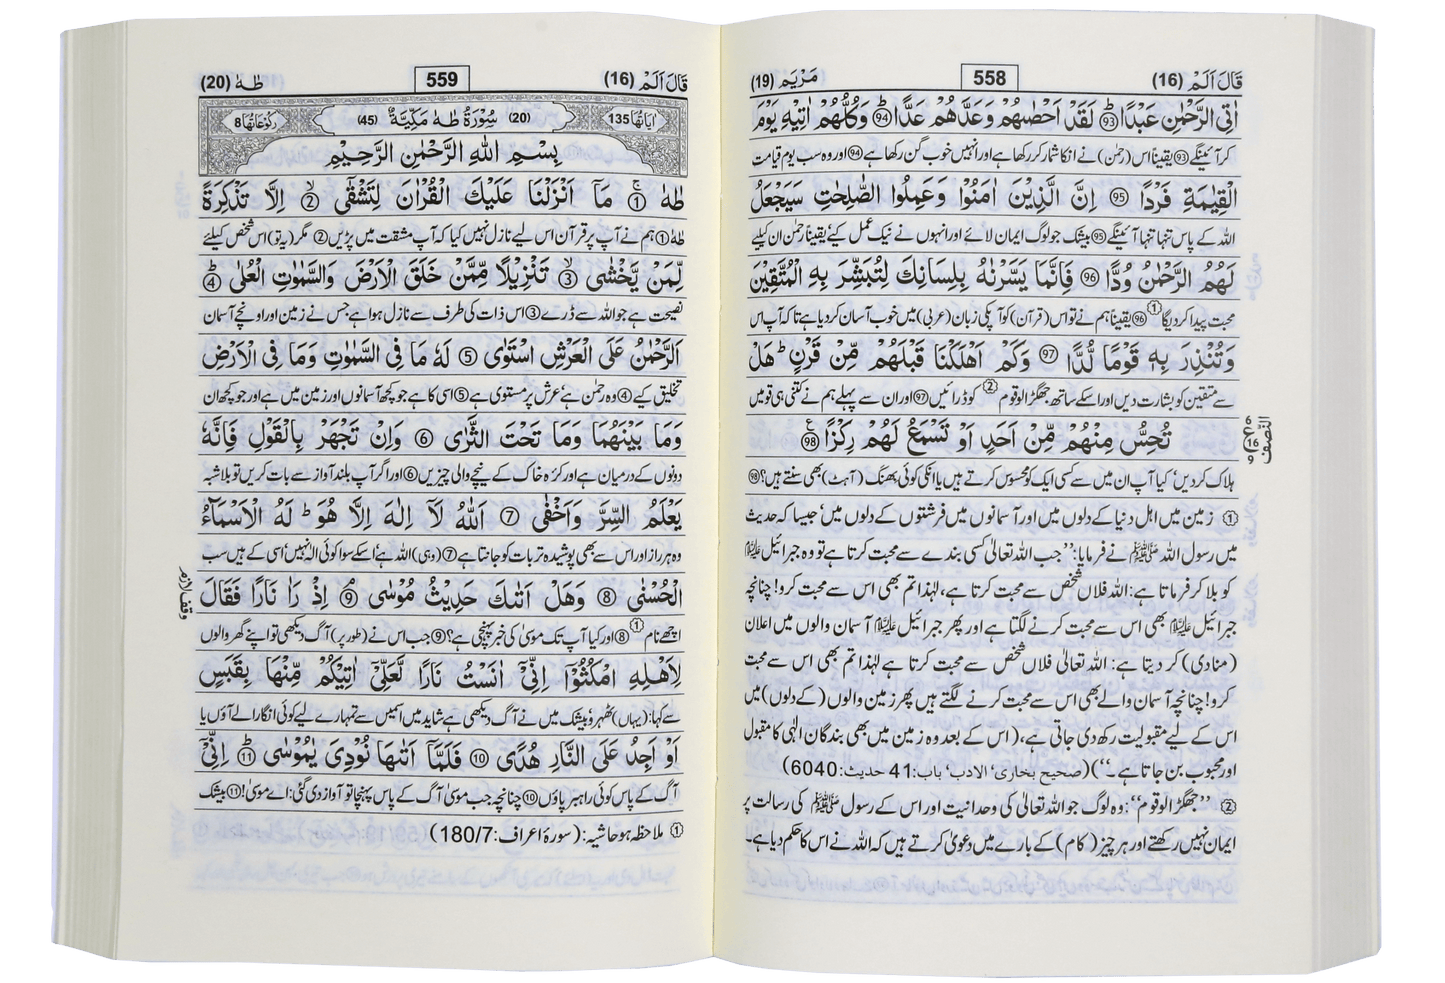 قَالَ اَلَمْ (16)
558
مَرْيَم (19)
اٰتِی الرَّحْمٰنِ عَبْدًا ﴿93﴾ لَقَدْ اَحْصٰىهُمْ وَعَدَّهُمْ عَدًّا ﴿94﴾ وَكُلُّهُمْ اٰتِيْهِ يَوْمَ
کر آئینگے ﴿93﴾ یقیناً اس (رحمٰن) نے انکا شمار کر رکھا ہے اور انہیں خوب گن رکھا ہے ﴿94﴾ اور وہ سب یوم قیامت
الْقِيٰمَةِ فَرْدًا ﴿95﴾ اِنَّ الَّذِيْنَ اٰمَنُوْا وَعَمِلُوا الصّٰلِحٰتِ سَيَجْعَلُ
اللہ کے پاس تنہا تنہا آئینگے ﴿95﴾ بیشک جو لوگ ایمان لائے اور انہوں نے نیک عمل کیے یقیناً رحمٰن ان کیلیے
لَهُمُ الرَّحْمٰنُ وُدًّا ﴿96﴾ فَاِنَّمَا يَسَّرْنٰهُ بِلِسَانِكَ لِتُبَشِّرَ بِهِ الْمُتَّقِيْنَ
محبت پیدا کر دیگا ① ﴿96﴾ یقیناً ہم نے تو اس (قرآن) کو آپکی زبان (عربی) میں خوب آسان کر دیا ہے تاکہ آپ اس
وَتُنْذِرَ بِهٖ قَوْمًا لُّدًّا ﴿97﴾ وَكَمْ اَهْلَكْنَا قَبْلَهُمْ مِّنْ قَرْنٍ ؕ هَلْ
سے متقین کو بشارت دیں اور اسکے ساتھ جھگڑالو قوم ② کو ڈرائیں ﴿97﴾ اور ان سے پہلے ہم نے کتنی ہی قومیں
تُحِسُّ مِنْهُمْ مِّنْ اَحَدٍ اَوْ تَسْمَعُ لَهُمْ رِكْزًا ﴿98﴾
النصف
ہلاک کر دیں، کیا آپ ان میں سے کسی ایک کو محسوس کرتے ہیں یا انکی کوئی بھنک (آہٹ) بھی سنتے ہیں؟ ﴿98﴾
① زمین میں اہل دنیا کے دلوں میں اور آسمانوں میں فرشتوں کے دلوں میں، جیسا کہ حدیث
میں رسول اللہ ﷺ نے فرمایا: ’’جب اللہ تعالیٰ کسی بندے سے محبت کرتا ہے تو وہ جبرائیل علیہ السلام
کو بلا کر فرماتا ہے: اللہ فلاں شخص سے محبت کرتا ہے، لہٰذا تم بھی اس سے محبت کرو! چنانچہ
جبرائیل علیہ السلام بھی اس سے محبت کرنے لگتا ہے اور پھر جبرائیل علیہ السلام آسمان والوں میں اعلان
(منادی) کر دیتا ہے: اللہ تعالیٰ فلاں شخص سے محبت کرتا ہے لہٰذا تم بھی اس سے محبت
کرو! چنانچہ آسمان والے بھی اس سے محبت کرنے لگتے ہیں پھر زمین والوں (کے دلوں) میں
اس کے لیے مقبولیت رکھ دی جاتی ہے، (اس کے بعد وہ زمین میں بھی بندگان الٰہی کا مقبول
اور محبوب بن جاتا ہے۔‘‘) (صحیح بخاری، الادب، باب: 41 حدیث: 6040)
② ’’جھگڑالو قوم‘‘: وہ لوگ جو اللہ تعالیٰ کی وحدانیت اور اس کے رسول ﷺ کی رسالت پر
ایمان نہیں رکھتے اور ہر چیز (کام) کے بارے میں دعویٰ کرتے ہیں کہ اللہ نے اس کا حکم دیا ہے۔
قَالَ اَلَمْ (16)
559
طٰهٰ (20)
اٰیَاتُهَا 135
(20) سُوْرَةُ طٰهٰ مَكِّيَّةٌ (45)
رُكُوْعَاتُهَا 8
بِسْمِ اللهِ الرَّحْمٰنِ الرَّحِيْمِ
طٰهٰ ﴿1﴾ مَاۤ اَنْزَلْنَا عَلَيْكَ الْقُرْاٰنَ لِتَشْقٰۤى ﴿2﴾ اِلَّا تَذْكِرَةً
طٰہٰ ﴿1﴾ ہم نے آپ پر قرآن اس لیے نازل نہیں کیا کہ آپ مشقت میں پڑیں ﴿2﴾ مگر (یہ تو) اس شخص کیلئے
لِّمَنْ يَّخْشٰى ﴿3﴾ تَنْزِيْلًا مِّمَّنْ خَلَقَ الْاَرْضَ وَالسَّمٰوٰتِ الْعُلٰى ﴿4﴾
نصیحت ہے جو اللہ سے ڈرے ﴿3﴾ اس ذات کی طرف سے نازل ہوا ہے جس نے زمین اور اونچے آسمان
اَلرَّحْمٰنُ عَلَى الْعَرْشِ اسْتَوٰى ﴿5﴾ لَهٗ مَا فِى السَّمٰوٰتِ وَمَا فِى الْاَرْضِ
تخلیق کیے ﴿4﴾ وہ رحمٰن ہے، عرش پر مستوی ہے ﴿5﴾ اسی کا ہے جو کچھ آسمانوں اور زمین میں ہے اور جو کچھ ان
وَمَا بَيْنَهُمَا وَمَا تَحْتَ الثَّرٰى ﴿6﴾ وَاِنْ تَجْهَرْ بِالْقَوْلِ فَاِنَّهٗ
دونوں کے درمیان ہے اور کرۂ خاک کے نیچے والی چیزیں ﴿6﴾ اور اگر آپ بلند آواز سے بات کریں تو بلاشبہ
يَعْلَمُ السِّرَّ وَاَخْفٰى ﴿7﴾ اَللهُ لَاۤ اِلٰهَ اِلَّا هُوَ ؕ لَهُ الْاَسْمَآءُ
وہ ہر راز اور اس سے بھی پوشیدہ تر بات کو جانتا ہے ﴿7﴾ (وہی) اللہ ہے، اسکے سوا کوئی الٰہ نہیں، اسی کے ہیں سب
الْحُسْنٰى ﴿8﴾ وَهَلْ اَتٰىكَ حَدِيْثُ مُوْسٰى ﴿9﴾ اِذْ رَاٰ نَارًا فَقَالَ
اچھے نام ① ﴿8﴾ اور کیا آپ تک موسیٰ کی خبر پہنچی ہے؟ ﴿9﴾ جب اس نے (طور پر) آگ دیکھی تو اپنے گھر والوں
لِاَهْلِهِ امْكُثُوْۤا اِنِّىْۤ اٰنَسْتُ نَارًا لَّعَلِّىْۤ اٰتِيْكُمْ مِّنْهَا بِقَبَسٍ
سے کہا: (یہاں) ٹھہرو، بیشک میں نے آگ دیکھی ہے شاید میں اسمیں سے تمہارے لیے کوئی انگارا لے آؤں یا
اَوْ اَجِدُ عَلَى النَّارِ هُدًى ﴿10﴾ فَلَمَّاۤ اَتٰىهَا نُوْدِىَ يٰمُوْسٰى ﴿11﴾ اِنِّىْۤ
آگ کے پاس کوئی راہبر پاؤں ﴿10﴾ چنانچہ جب موسیٰ آگ کے پاس پہنچا تو آواز دی گئی: اے موسیٰ! ﴿11﴾ بیشک
① ملاحظہ ہو حاشیہ: (سورۂ اعراف: 180/7)